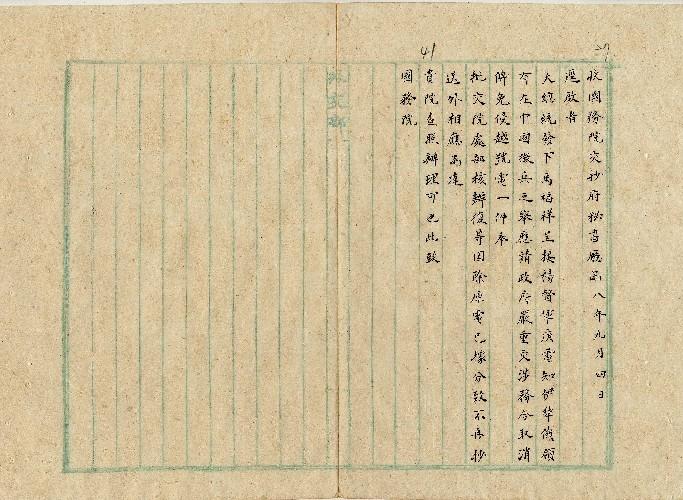 27
收國務院交抄府秘書廳函八年九月四日
逕啟者
大總統發下馬福祥呈接楊督軍漾電知伊犂俄領
有在中國徵兵之舉應請政府嚴重交涉務令取消
俾免侵越號電一件奉
批交院處部核辦復等因除原電已據分致不再抄
送外相應函達
貴院查照辦理可也此致
國務院
41